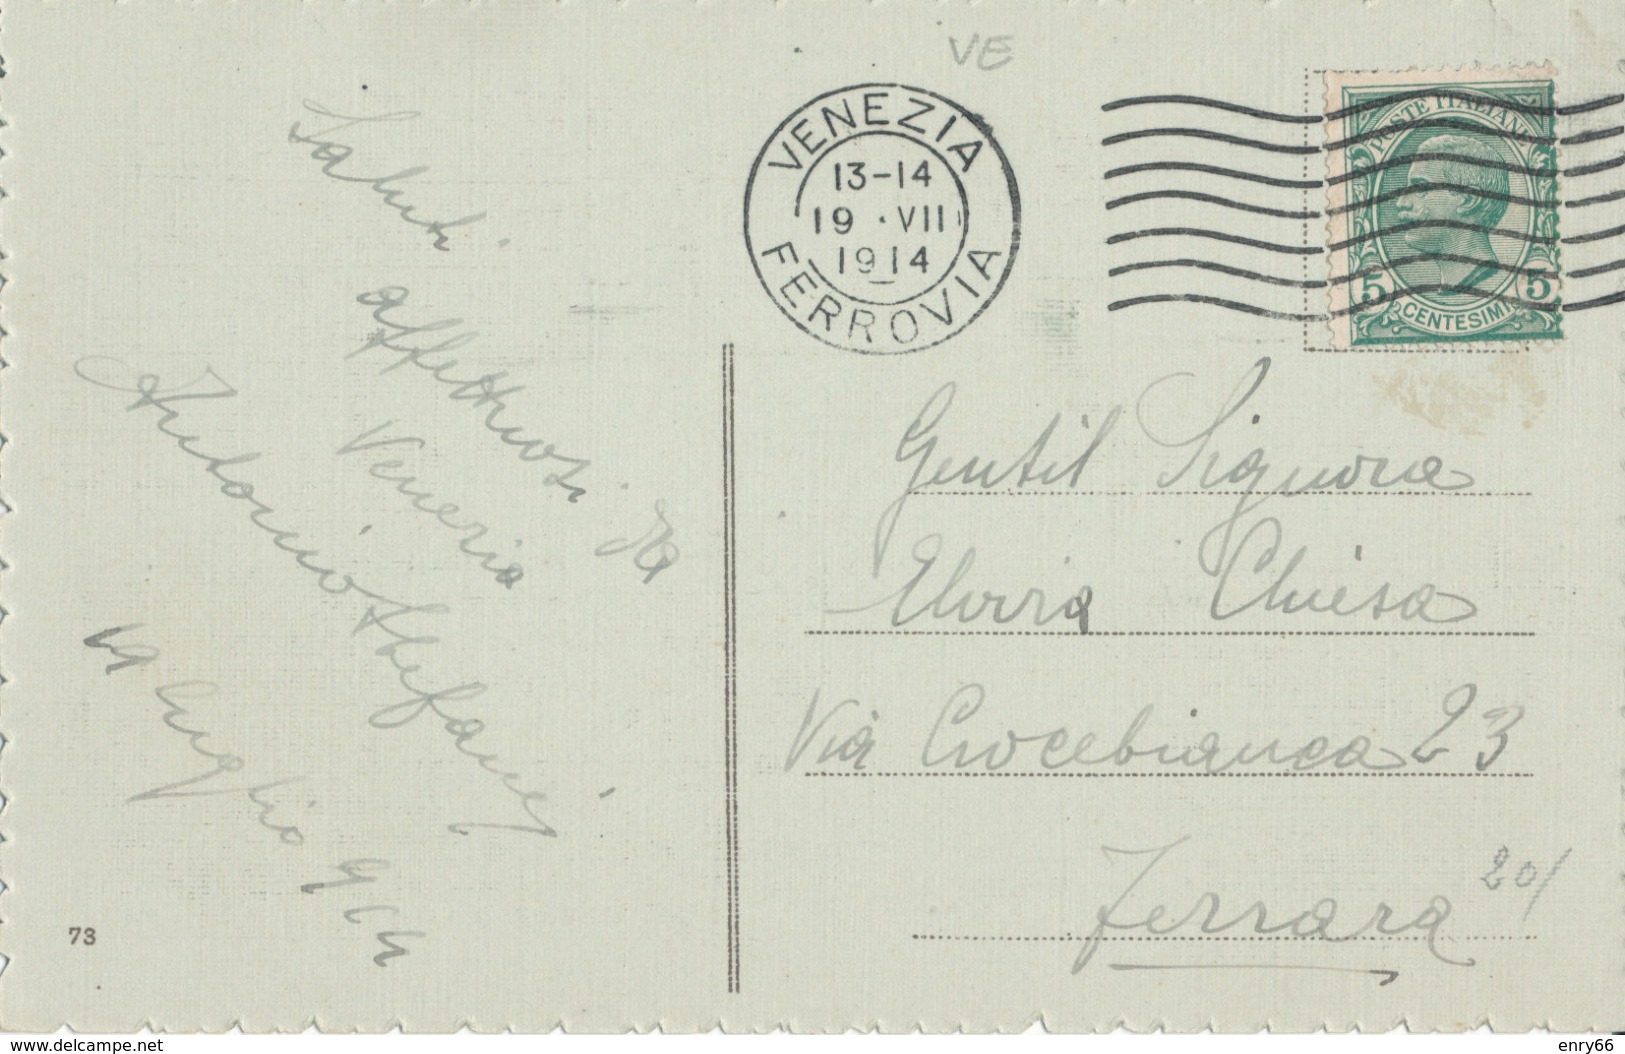 VE
VENEZIA
13-14
19 · VII
1914
FERROVIA
POSTE ITALIANE
5 CENTESIMI 5
Saluti
affettuosi da
Venezia
Antonio Stefani
19 Luglio 914
Gentil Signora
Elvira Chiesa
Via Crocebianca 23
Ferrara
20/
73
www.delcampe.net
enry66